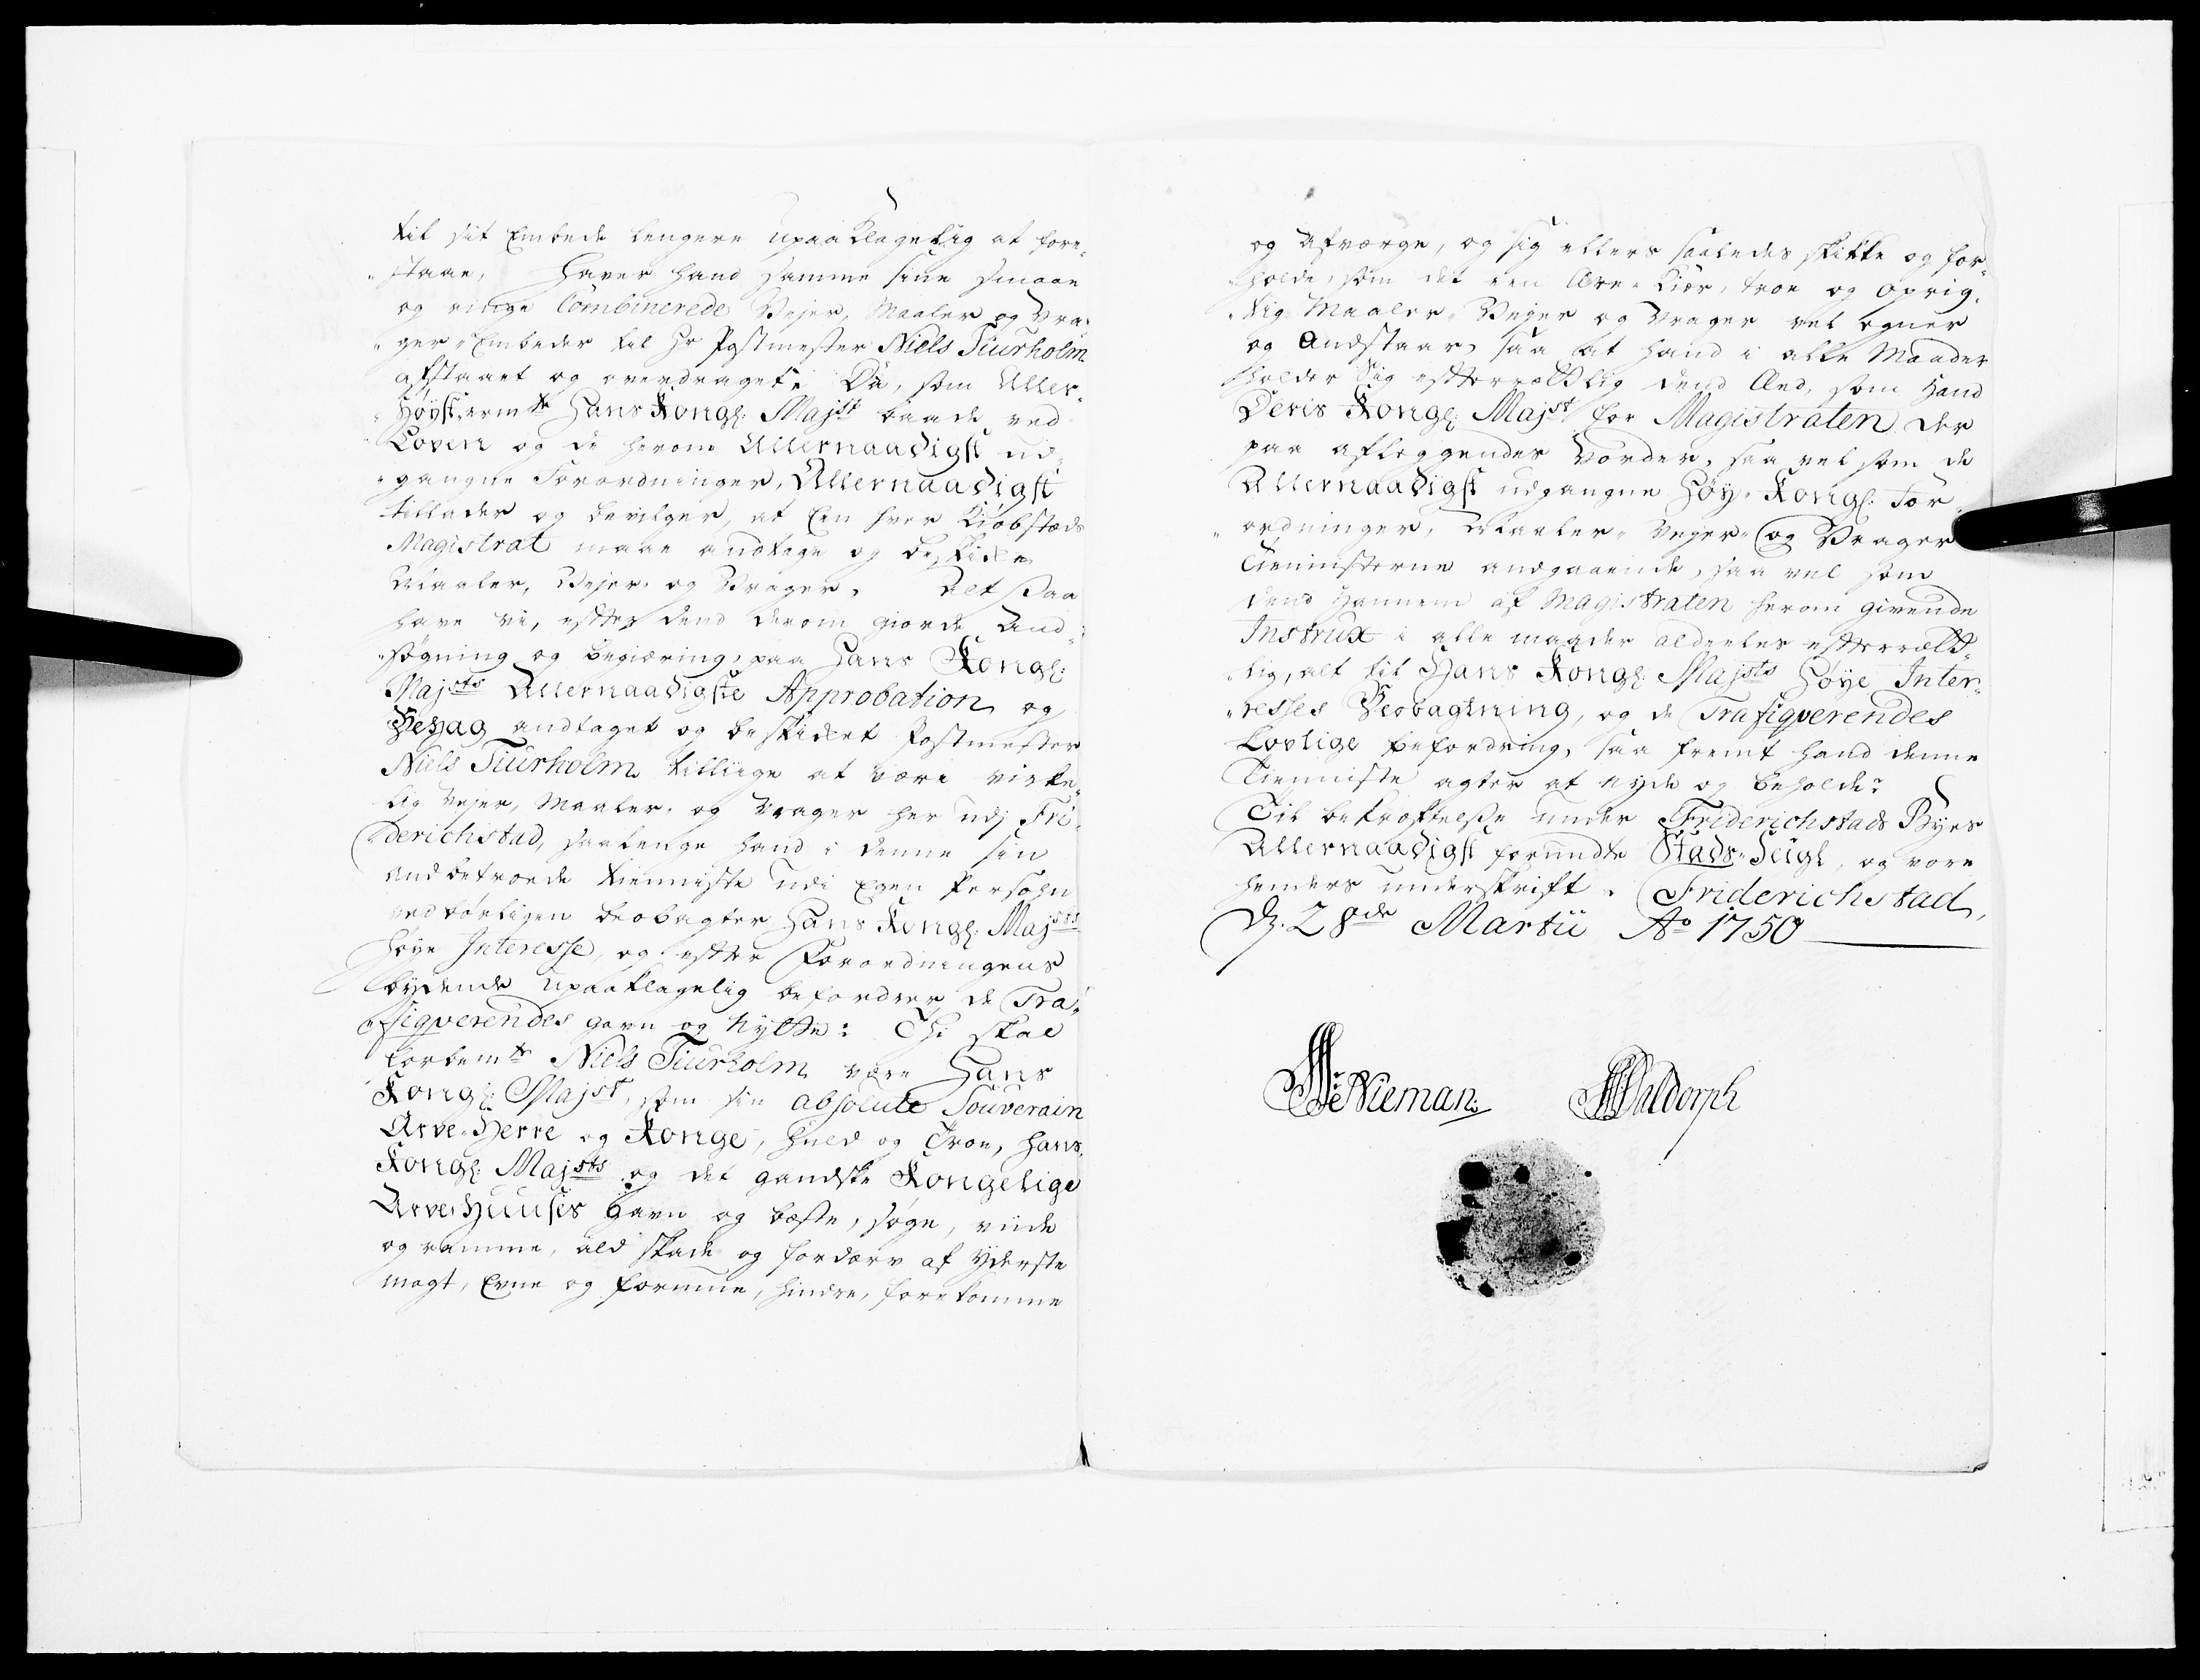 til sit Embede lengere upaaklagelig at fore-
"staae, haver hand samme sine smaae
og ringe Combinerede Vejer, Maaler og Vra-
"ger-Embeder til Hr Postmester Niels Tiurholm
afstaaet og overdraget; Da, som Aller-
"Høystermte Hans Kongl: Majst baade ved
Loven og de herom Allernaadigst ud-
"gangne Forordninger, Allernaadigst
tillader og bevilger, at Een hver Kiøbstæds
Magistrat maae andtage og beskikke
Maaler, Vejer og Vrager. Alt saa
have vi, efter dend derom giorde And-
"søgning og begiæring, paa Hans Kongl:
Majsts Allernaadigste Approbation og
Behag andtaget og beskikket Postmester
Niels Tiurholm tillige at være virke-
lig Vejer, Maaler og Vrager her udj Fri-
derichstad, saalenge hand i denne sin
andbetroede tienniste udi Egen Persohn
vedbørligen beobagter Hans Kongl: Majsts
høye Interesse, og efter Forordningens
bydende upaaklagelig befordrer de Tra-
"fiqverendes gavn og Nytte: Thi skal
forbemte Niels Tiurholm være Hans
Kongl: Majst, som sin absolute Souverain
Arve-Herre og Konge, huld og Troe, hans
Kongl: Majsts og det gandske Kongelige
Arve-Huuses gavn og bæste, søge, viide
og ramme, ald skade og fordærv af yderste
magt, Evne og formue, hindre, forekomme
og Afværge, og sig ellers saaledes skikke og for-
"holde, som det een Ære-Kiær, troe og oprig-
"tig Maaler, Vejer og Vrager vel egner
og andstaar, saa at hand i alle Maader
holder Sig efterrættlig dend Æed, som Hand
Deris Kongl: Majst for Magistraten der
paa afleggendes vorder, saa vel som de
Allernaadigst udgangne Høy-Kongl: For-
"ordninger, Maaler- Vejer- og Vrager
Tiennisterne andgaaende, saa vel som
dend Hannem af Magistraten herom givende
Instrux i alle maader aldeeles efterrætt-
"lig, alt til Hans Kongl: Majsts Høye Inter-
"resses Beobagtning, og de Trafiqverendes
Lovlige befordring, saa fremt hand denne
Tienniste agter at nyde og beholde?
Til bekræftelse under Friderichstads Byes
Allernaadigst forundte Stads-Seigl, og vore
henders underskrift. Friderichstad,
D. 28de Martii Ao 1750
Nieman: Waldorph